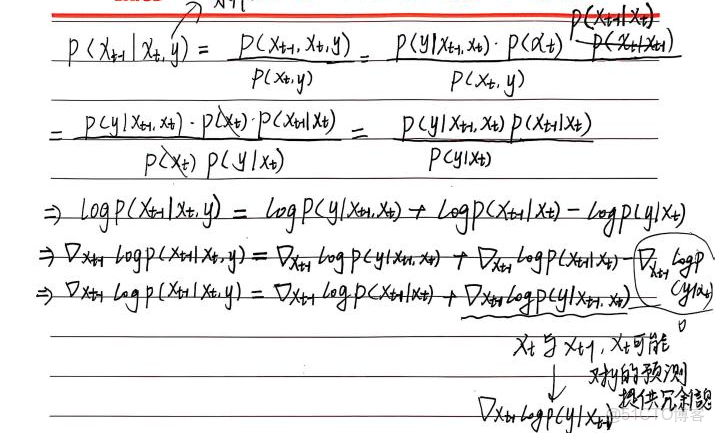 p(x_{t-1}|x_t, y) = \frac{p(x_{t-1}, x_t, y)}{p(x_t, y)} = \frac{p(y|x_{t-1}, x_t) · p(x_t) · p(x_{t-1}|x_t)}{p(x_t, y)}
= \frac{p(y|x_{t-1}, x_t) · p(x_t) · p(x_{t-1}|x_t)}{p(x_t) p(y|x_t)} = \frac{p(y|x_{t-1}, x_t) p(x_{t-1}|x_t)}{p(y|x_t)}
⇒ log p(x_{t-1}|x_t, y) = log p(y|x_{t-1}, x_t) + log p(x_{t-1}|x_t) - log p(y|x_t)
⇒ ∇_{x_{t-1}} log p(x_{t-1}|x_t, y) = ∇_{x_{t-1}} log p(y|x_{t-1}, x_t) + ∇_{x_{t-1}} log p(x_{t-1}|x_t) - ∇_{x_{t-1}} log p(y|x_t)
⇒ ∇_{x_{t-1}} log p(x_{t-1}|x_t, y) = ∇_{x_{t-1}} log p(x_{t-1}|x_t) + ∇_{x_{t-1}} log p(y|x_{t-1}, x_t)
0
x_t 与 x_{t-1}, x_t 可能
对y的预测
提供冗余信息
∇_{x_{t-1}} log p(y|x_{t-1})
@51CTO博客